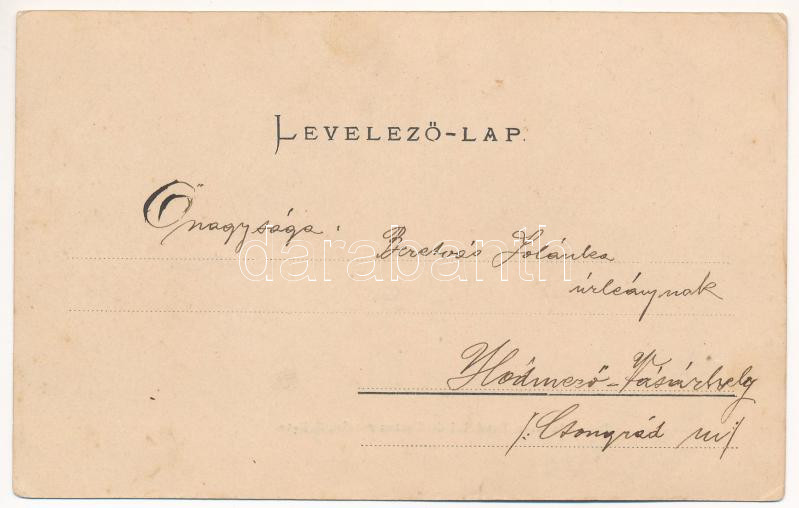 LEVELEZŐ-LAP.
Őnagysága.
Beretvás Jolánka
úrleánynak
Hódmező-Vásárhely
/: Csongrád m /
darabanth